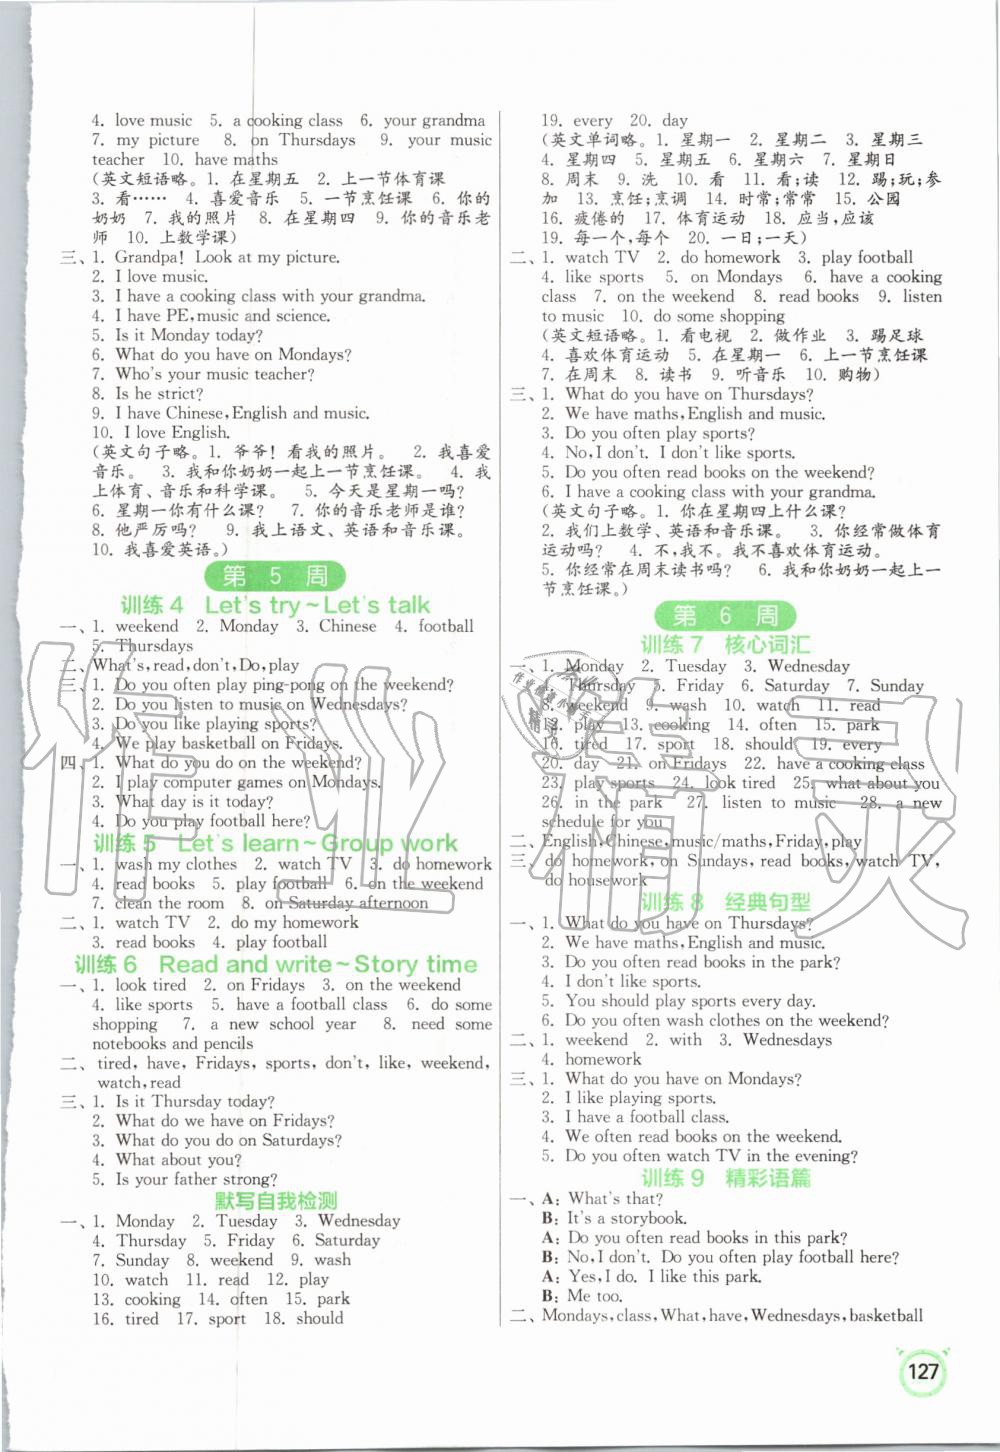 4. love music 5. a cooking class 6. your grandma
7. my picture 8. on Thursdays 9. your music
teacher 10. have maths
(英文短语略。1. 在星期五 2. 上一节体育课
3. 看…… 4. 喜爱音乐 5. 一节烹饪课 6. 你的
奶奶 7. 我的照片 8. 在星期四 9. 你的音乐老
师 10. 上数学课)
三、1. Grandpa! Look at my picture.
2. I love music.
3. I have a cooking class with your grandma.
4. I have PE,music and science.
5. Is it Monday today?
6. What do you have on Mondays?
7. Who's your music teacher?
8. Is he strict?
9. I have Chinese,English and music.
10. I love English.
(英文句子略。1. 爷爷!看我的照片。 2. 我喜爱
音乐。 3. 我和你奶奶一起上一节烹饪课。 4. 我
上体育、音乐和科学课。 5. 今天是星期一吗?
6. 星期一你有什么课? 7. 你的音乐老师是谁?
8. 他严厉吗? 9. 我上语文、英语和音乐课。
10. 我喜爱英语。)
第 5 周
训练4 Let's try~Let's talk
一、1. weekend 2. Monday 3. Chinese 4. football
5. Thursdays
二、What's,read,don't,Do,play
三、1. Do you often play ping-pong on the weekend?
2. Do you listen to music on Wednesdays?
3. Do you like playing sports?
4. We play basketball on Fridays.
四、1. What do you do on the weekend?
2. I play computer games on Mondays.
3. What day is it today?
4. Do you play football here?
训练5 Let's learn~Group work
一、1. wash my clothes 2. watch TV 3. do homework
4. read books 5. play football 6. on the weekend
7. clean the room 8. on Saturday afternoon
二、1. watch TV 2. do my homework
3. read books 4. play football
训练6 Read and write~Story time
一、1. look tired 2. on Fridays 3. on the weekend
4. like sports 5. have a football class 6. do some
shopping 7. a new school year 8. need some
notebooks and pencils
二、tired, have, Fridays, sports, don't, like, weekend,
watch,read
三、1. Is it Thursday today?
2. What do we have on Fridays?
3. What do you do on Saturdays?
4. What about you?
5. Is your father strong?
默写自我检测
一、1. Monday 2. Tuesday 3. Wednesday
4. Thursday 5. Friday 6. Saturday
7. Sunday 8. weekend 9. wash
10. watch 11. read 12. play
13. cooking 14. often 15. park
16. tired 17. sport 18. should
19. every 20. day
(英文单词略。1. 星期一 2. 星期二 3. 星期三
4. 星期四 5. 星期五 6. 星期六 7. 星期日
8. 周末 9. 洗 10. 看 11. 看;读 12. 踢;玩;参
加 13. 烹饪;烹调 14. 时常;常常 15. 公园
16. 疲倦的 17. 体育运动 18. 应当,应该
19. 每一个,每个 20. 一日;一天)
二、1. watch TV 2. do homework 3. play football
4. like sports 5. on Mondays 6. have a cooking
class 7. on the weekend 8. read books 9. listen
to music 10. do some shopping
(英文短语略。1. 看电视 2. 做作业 3. 踢足球
4. 喜欢体育运动 5. 在星期一 6. 上一节烹饪课
7. 在周末 8. 读书 9. 听音乐 10. 购物)
三、1. What do you have on Thursdays?
2. We have maths,English and music.
3. Do you often play sports?
4. No,I don't. I don't like sports.
5. Do you often read books on the weekend?
6. I have a cooking class with your grandma.
(英文句子略。1. 你在星期四上什么课?
2. 我们上数学、英语和音乐课。 3. 你经常做体育
运动吗? 4. 不,我不。我不喜欢体育运动。
5. 你经常在周末读书吗? 6. 我和你奶奶一起上
一节烹饪课。)
第 6 周
训练7 核心词汇
一、1. Monday 2. Tuesday 3. Wednesday
4. Thursday 5. Friday 6. Saturday 7. Sunday
8. weekend 9. wash 10. watch 11. read
12. play 13. cooking 14. often 15. park
16. tired 17. sport 18. should 19. every
20. day 21. on Fridays 22. have a cooking class
23. play sports 24. look tired 25. what about you
26. in the park 27. listen to music 28. a new
schedule for you
二、English,Chinese,music/maths,Friday,play
三、do homework, on Sundays, read books, watch TV,
do housework
训练8 经典句型
一、1. What do you have on Thursdays?
2. We have maths,English and music.
3. Do you often read books in the park?
4. I don't like sports.
5. You should play sports every day.
6. Do you often wash clothes on the weekend?
二、1. weekend 2. with 3. Wednesdays
4. homework
三、1. What do you have on Mondays?
2. I like playing sports.
3. I have a football class.
4. We often read books on the weekend.
5. Do you often watch TV in the evening?
训练9 精彩语篇
一、A: What's that?
B: It's a storybook.
A: Do you often read books in this park?
B: No,I don't. Do you often play football here?
A: Yes,I do. I like this park.
B: Me too.
二、Mondays,class,What,have,Wednesdays,basketball
127
作业精灵